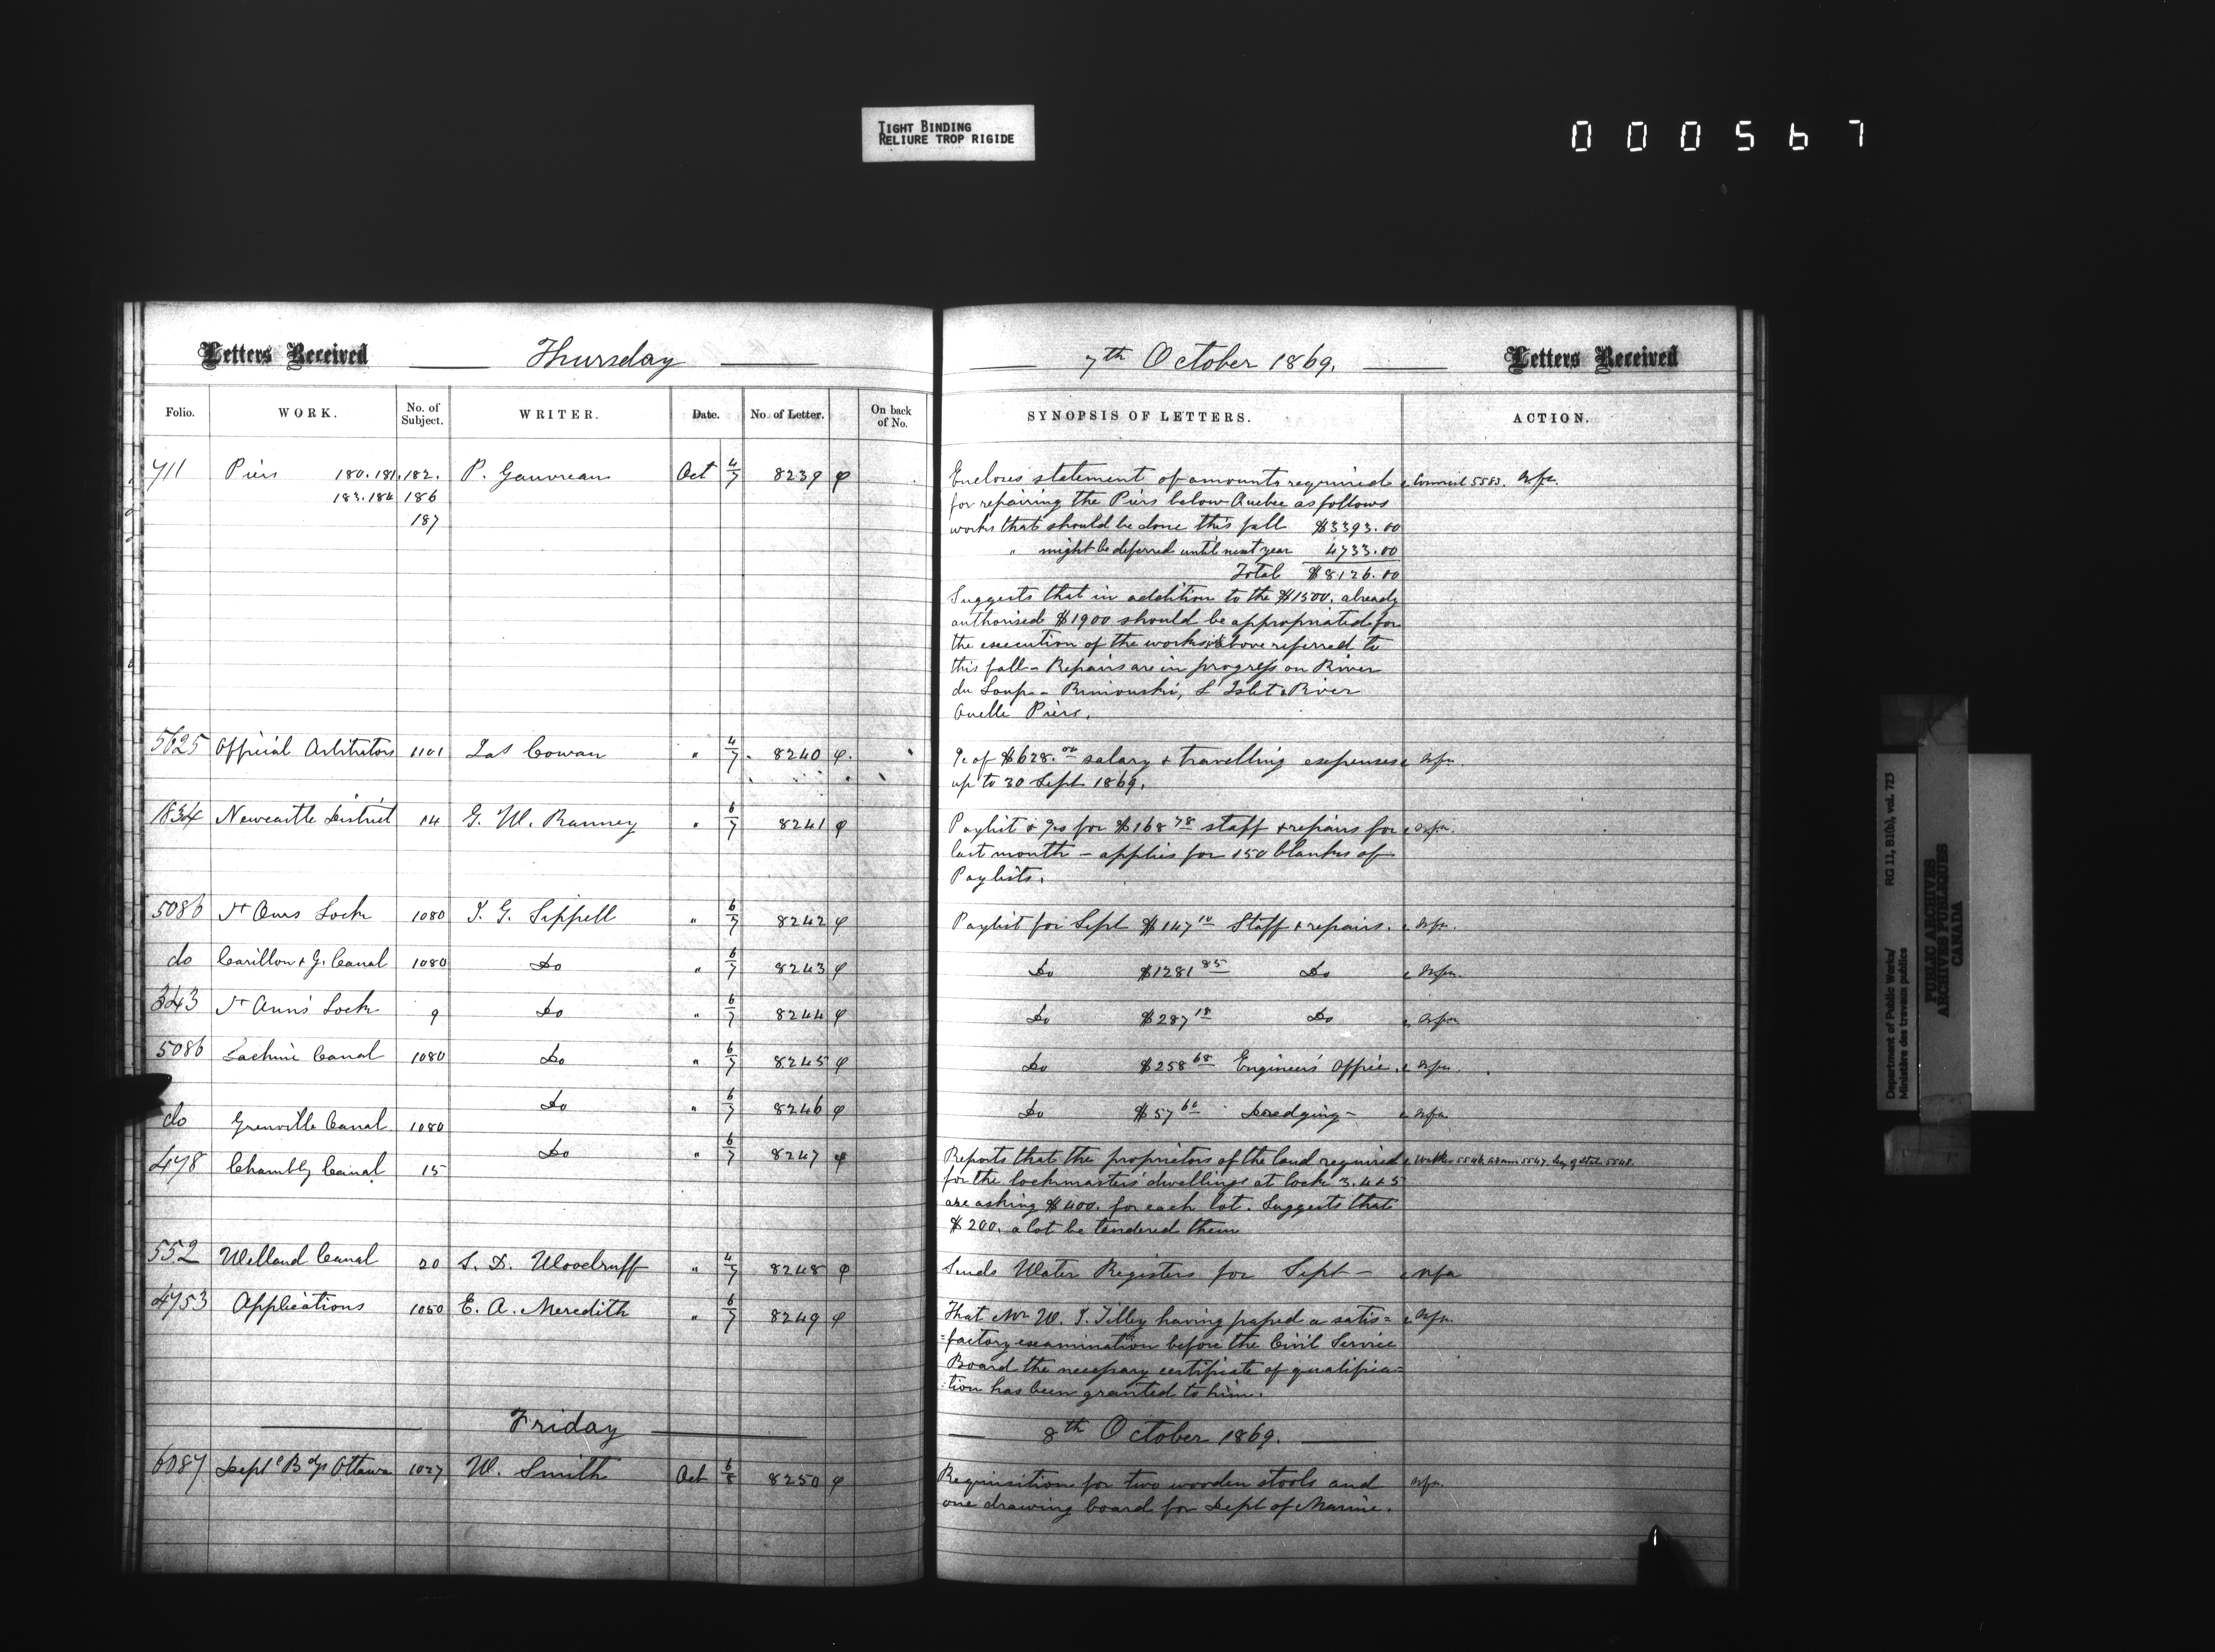 TIGHT BINDING
RELIURE TROP RIGIDE
000567
Letters Received Thursday
Folio. WORK. No. of Subject. WRITER. Date. No. of Letter. On back of No.
711 Piers 180. 181. 182. P. Gauvreau Oct 4/7 8239
183. 184 186
187
5625 Official Arbitrators 1101 Jas Cowan " 4/7 8240
1834 Newcastle District 14 G. W. Ranney " 6/7 8241
5086 St Anns Lock 1080 J. G. Sippell " 6/7 8242
do Carillon & G. Canal 1080 Do " 6/7 8243
343 St Ann's Lock 9 Do " 6/7 8244
5086 Lachine Canal 1080 Do " 6/7 8245
do Grenville Canal 1080 Do " 6/7 8246
478 Chambly Canal 15 Do " 6/7 8247
552 Welland Canal 20 S. D. Woodruff " 4/7 8248
4753 Applications 1050 E. A. Meredith " 6/7 8249
Friday
6087 Deptl Bdgs Ottawa 1027 W. Smith Oct 6/8 8250
7th October 1869. Letters Received
SYNOPSIS OF LETTERS. ACTION.
Encloses statement of amounts required Council 5583. Nfa.
for repairing the Piers below Quebec as follows
works that should be done this fall $3393.00
" might be deferred until next year 4733.00
Total $8126.00
Suggests that in addition to the $1500. already
authorised $1900 should be appropriated for
the execution of the works above referred to
this fall - Repairs are in progress on River
du Loup - Rimouski, L'Islet & River
Ouelle Piers.
of $628.00 salary & travelling expenses Nfa.
up to 30 Sept 1869.
Paylist & for $168 78 staff & repairs for Nfa.
last month - applies for 150 blanks of
Paylists.
Paylist for Sept $147 10 Staff & repairs. Nfa.
Do $1281 85 Do Nfa.
Do $287 18 Do Nfa
Do $258 68 Engineers Office. Nfa
Do $57 60 Dredging - Nfa
Reports that the proprietors of the land required 5546, 5547. Sec of State 5548.
for the lockmasters' dwellings at lock 3. 4 & 5
are asking $400. for each lot. Suggests that
$200. a lot be tendered them
Sends Water Registers for Sept - Nfa
That Mr W. J. Tilley having passed a satis= Nfa.
=factory examination before the Civil Service
Board the necessary certificate of qualifica=
=tion has been granted to him.
8th October 1869.
Requisitions for two wooden stools and Nfa.
one drawing board for Dept of Marine.
Department of Public Works/ RG 11, B1(b), vol. 723
Ministère des travaux publics
PUBLIC ARCHIVES
ARCHIVES PUBLIQUES
CANADA